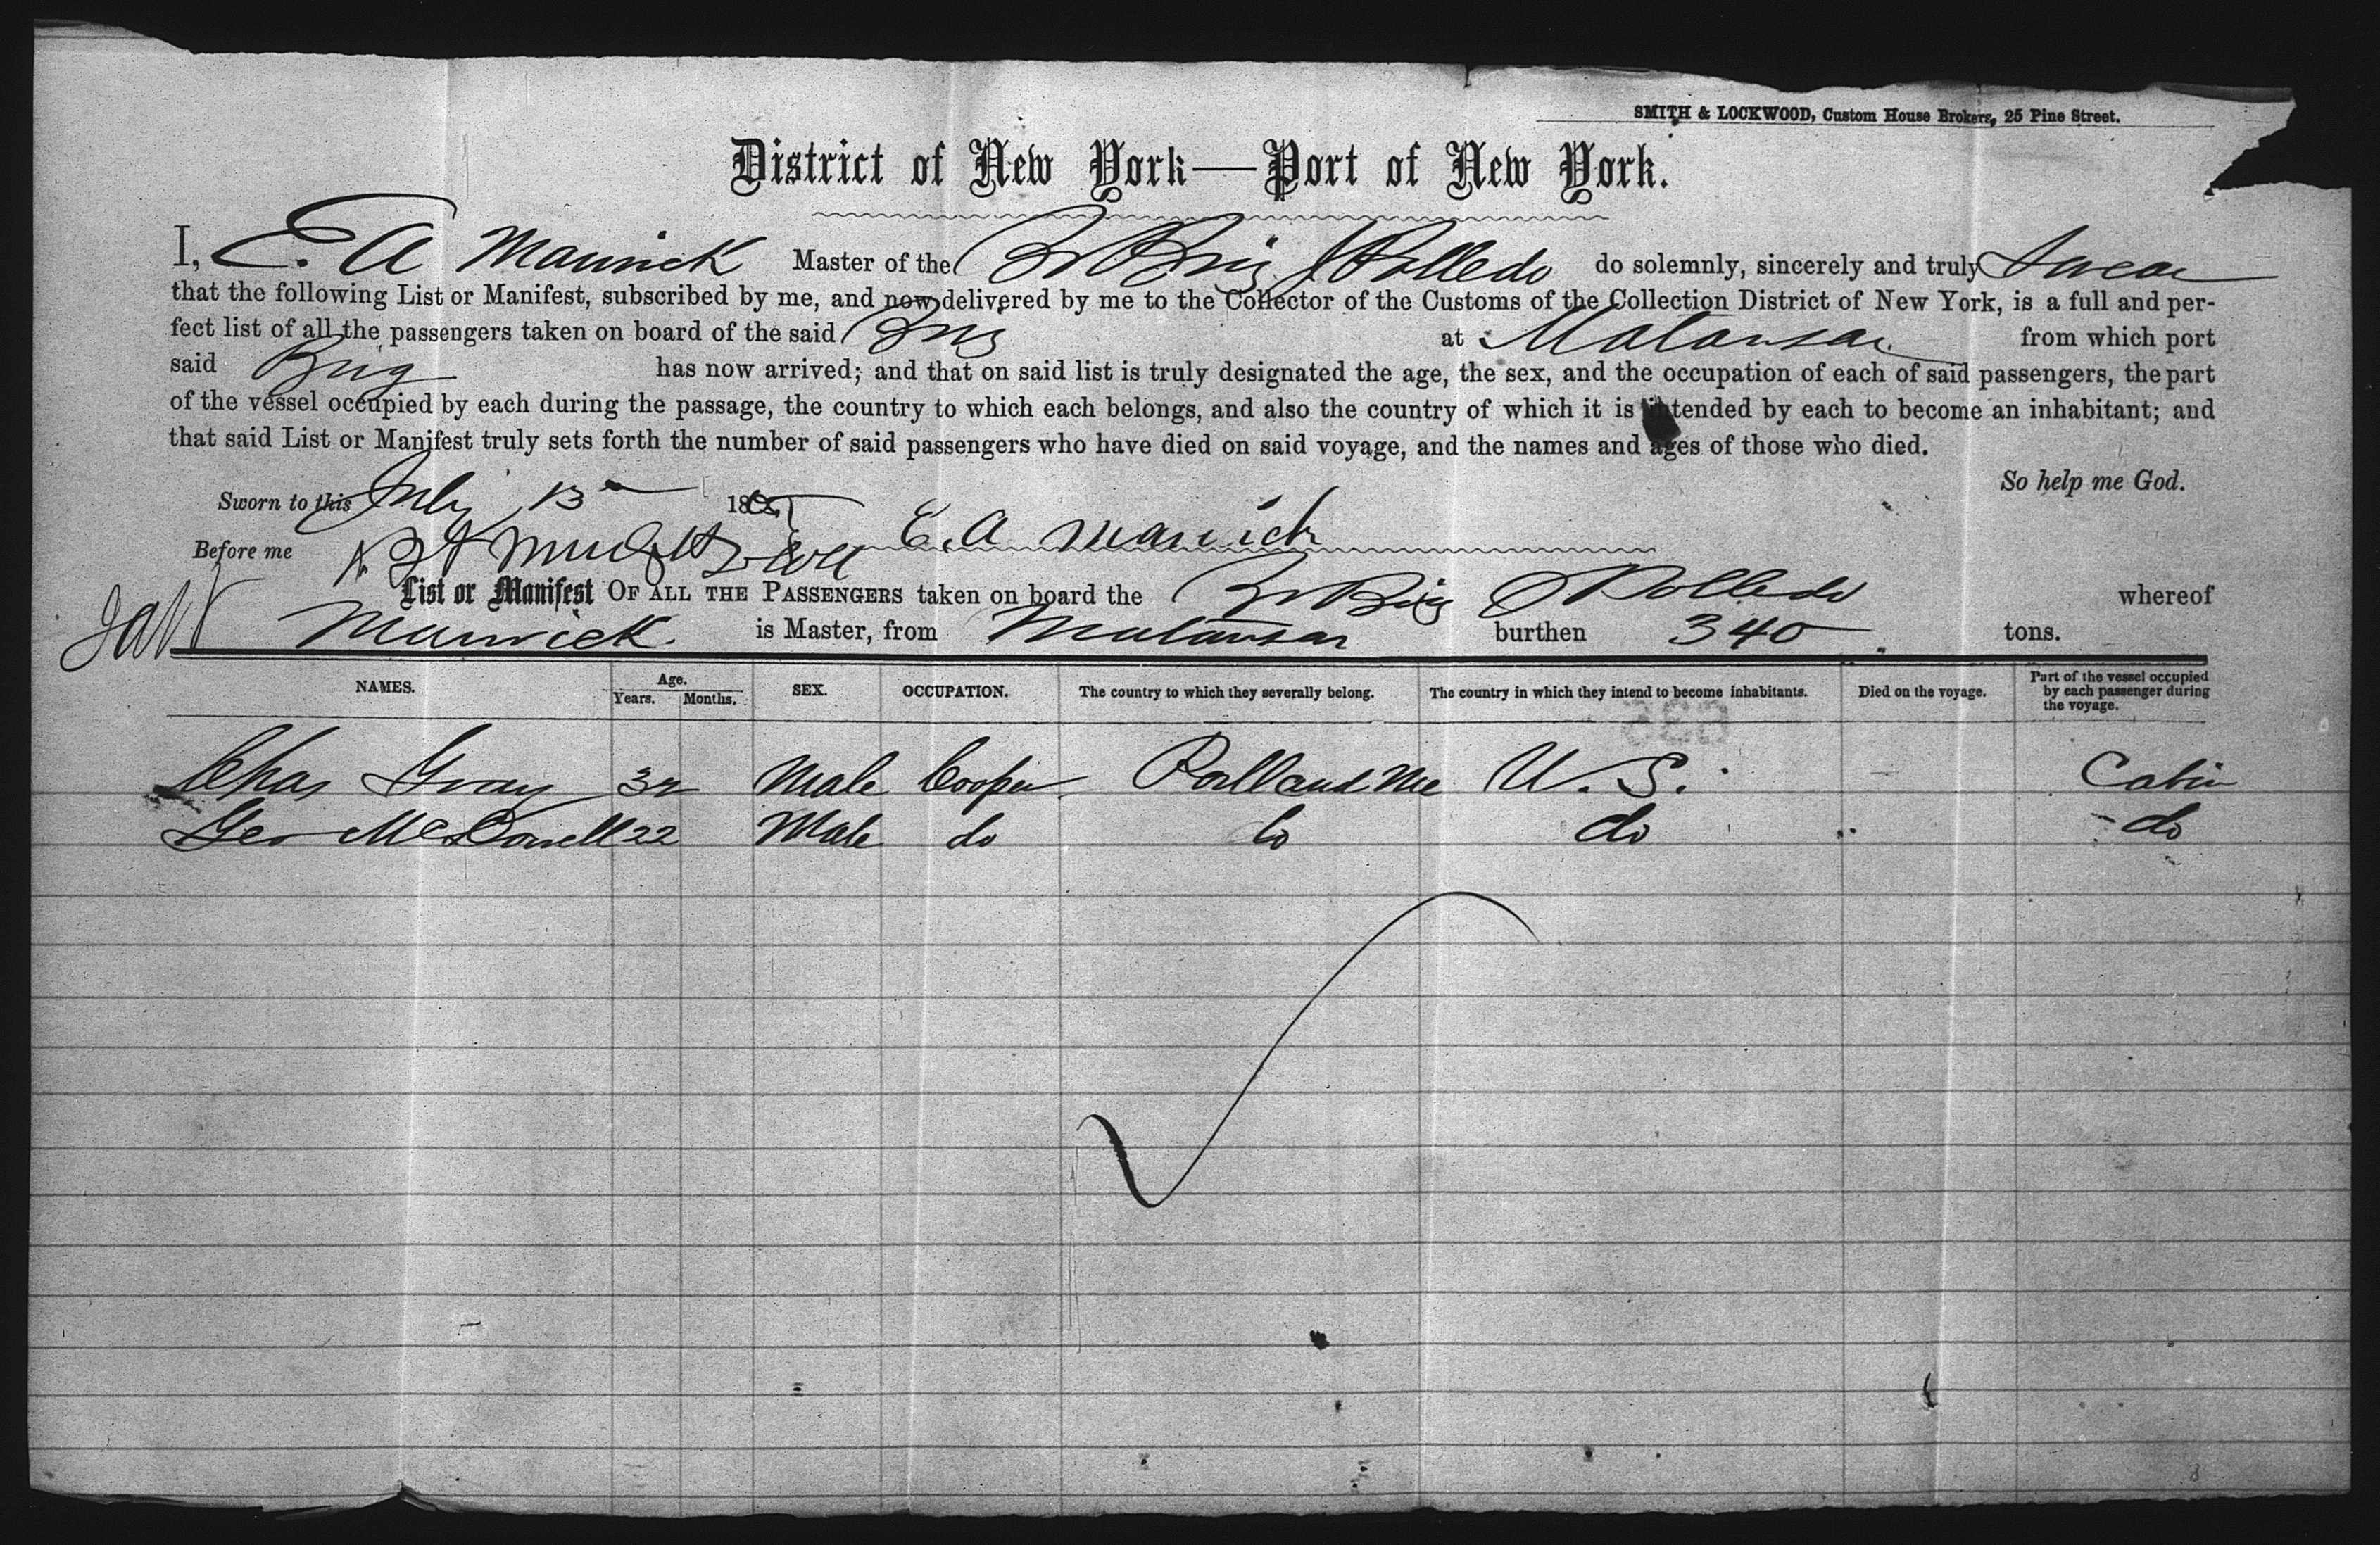 SMITH & LOCKWOOD, Custom House Brokers, 25 Pine Street.
District of New York—Port of New York.
I, E. A Marwick Master of the Br Brig J Polledo do solemnly, sincerely and truly Swear
that the following List or Manifest, subscribed by me, and now delivered by me to the Collector of the Customs of the Collection District of New York, is a full and per-
fect list of all the passengers taken on board of the said Brig at Matanzas from which port
said Brig has now arrived; and that on said list is truly designated the age, the sex, and the occupation of each of said passengers, the part
of the vessel occupied by each during the passage, the country to which each belongs, and also the country of which it is intended by each to become an inhabitant; and
that said List or Manifest truly sets forth the number of said passengers who have died on said voyage, and the names and ages of those who died.
So help me God.
Sworn to this July 13 1865
Before me E. A Marwick
List or Manifest OF ALL THE PASSENGERS taken on board the Br Brig J Polledo whereof
Marwick. is Master, from Matanzas burthen 340 tons.
NAMES. Age. Years. Months. SEX. OCCUPATION. The country to which they severally belong. The country in which they intend to become inhabitants. Died on the voyage. Part of the vessel occupied by each passenger during the voyage.
Chas Gray 32 Male Cooper Portland Me U. S. Cabin
Geo McDowell 22 Male do do do do